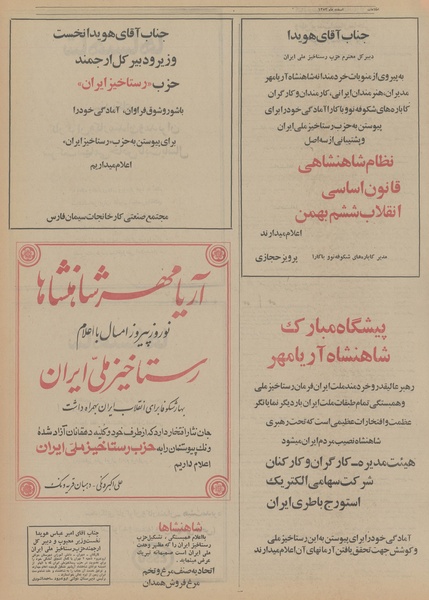 جناب آقای هویدا
دبیر کل محترم حزب رستاخیز ملی ایران
به پیروی از منویات خردمندانه شاهنشاه آریامهر
مدیران، هنرمندان ایرانی، کارمندان و کارگران
کاباره‌های شکوفه نو و باکارا آمادگی خود را برای
پیوستن به حزب رستاخیز ملی ایران
و پشتیبانی از سه اصل
نظام شاهنشاهی
قانون اساسی
انقلاب ششم بهمن
اعلام میدارند
مدیر کاباره‌های شکوفه نو و باکارا پرویز حجازی
جناب آقای هویدا نخست
وزیر و دبیر کل ارجمند
حزب «رستاخیز ایران»
با شور و شوق فراوان، آمادگی خود را
برای پیوستن به حزب «رستاخیز ایران»
اعلام میداریم
مجتمع صنعتی کارخانجات سیمان فارس
پیشگاه مبارک
شاهنشاه آریامهر
رهبر عالیقدر و خردمند ملت ایران فرمان رستاخیز ملی
و همبستگی تمام طبقات ملت ایران بار دیگر نمایانگر
عظمت و افتخارات عظیمی است که تحت رهبری
شاهنشاه نصیب مردم ایران میشود
هیئت مدیره ـ کارگران و کارکنان
شرکت سهامی الکتریک
استورج باطری ایران
آمادگی خود را برای پیوستن به این رستاخیز ملی
و کوشش جهت تحقق یافتن آرمانهای آن اعلام میدارند
آریامهر شاهنشاها
نوروز پیروز امسال با اعلام
رستاخیز ملی ایران
بهار شکوفا برای انقلاب ایران بهمراه داشت
جان نثار افتخار دارد که از طرف خود و کلیه دهقانان آزاد شده
ونک پیوستن را به حزب رستاخیز ملی ایران
اعلام داریم
شاهنشاها
با اعلام همبستگی، تشکیل حزب
رستاخیز ایران را که مظهر وحدت
ملی ایران است صمیمانه تبریک
عرض مینماید
اتحادیه صنف مرغ و تخم
مرغ فروش همدان
جناب آقای امیر عباس هویدا
نخست‌وزیر محبوب و دبیر کل
ارجمند حزب رستاخیز ملی ایران